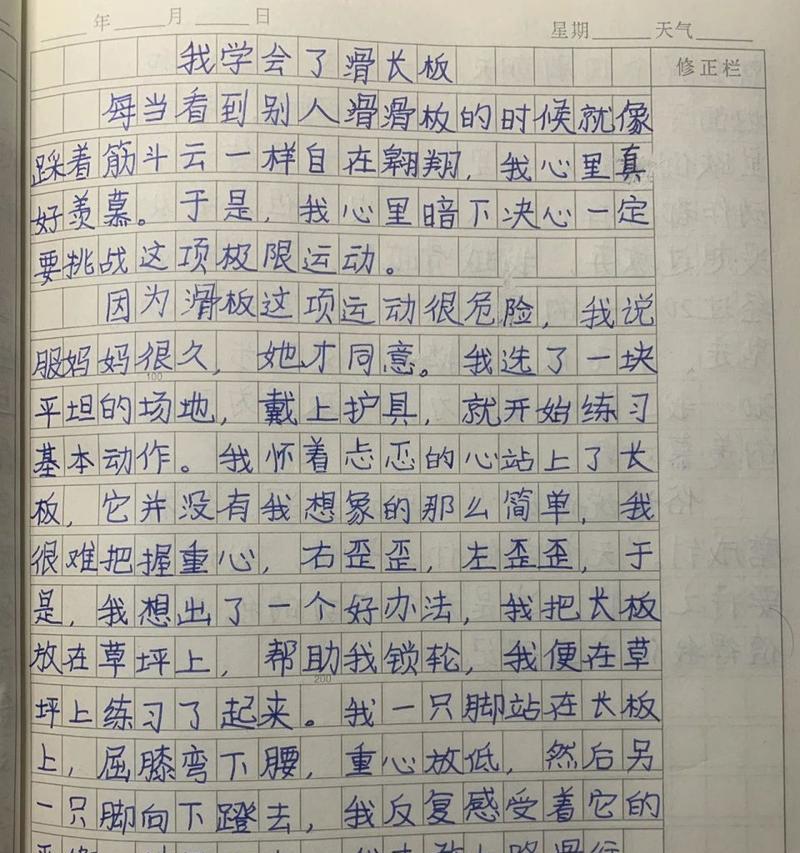 年 月 日 星期 天气
修正栏
我学会了滑长板
每当看到别人滑滑板的时候就像
踩着筋斗云一样自在翱翔，我心里真
好羡慕。于是，我心里暗下决心一定
要挑战这项极限运动。
因为滑板这项运动很危险，我说
服妈妈很久，她才同意。我选了一块
100
平坦的场地，戴上护具，就开始练习
基本动作。我怀着忐忑的心站上了长
板，它并没有我想象的那么简单，我
很难把握重心，右歪歪，左歪歪，于
是，我想出了一个好办法，我把长板
放在草坪上，帮助我锁轮，我便在草
200
坪上练习了起来。我一只脚站在长板
上，屈膝弯下腰，重心放低，然后另
一只脚向下蹬去，我反复感受着它的